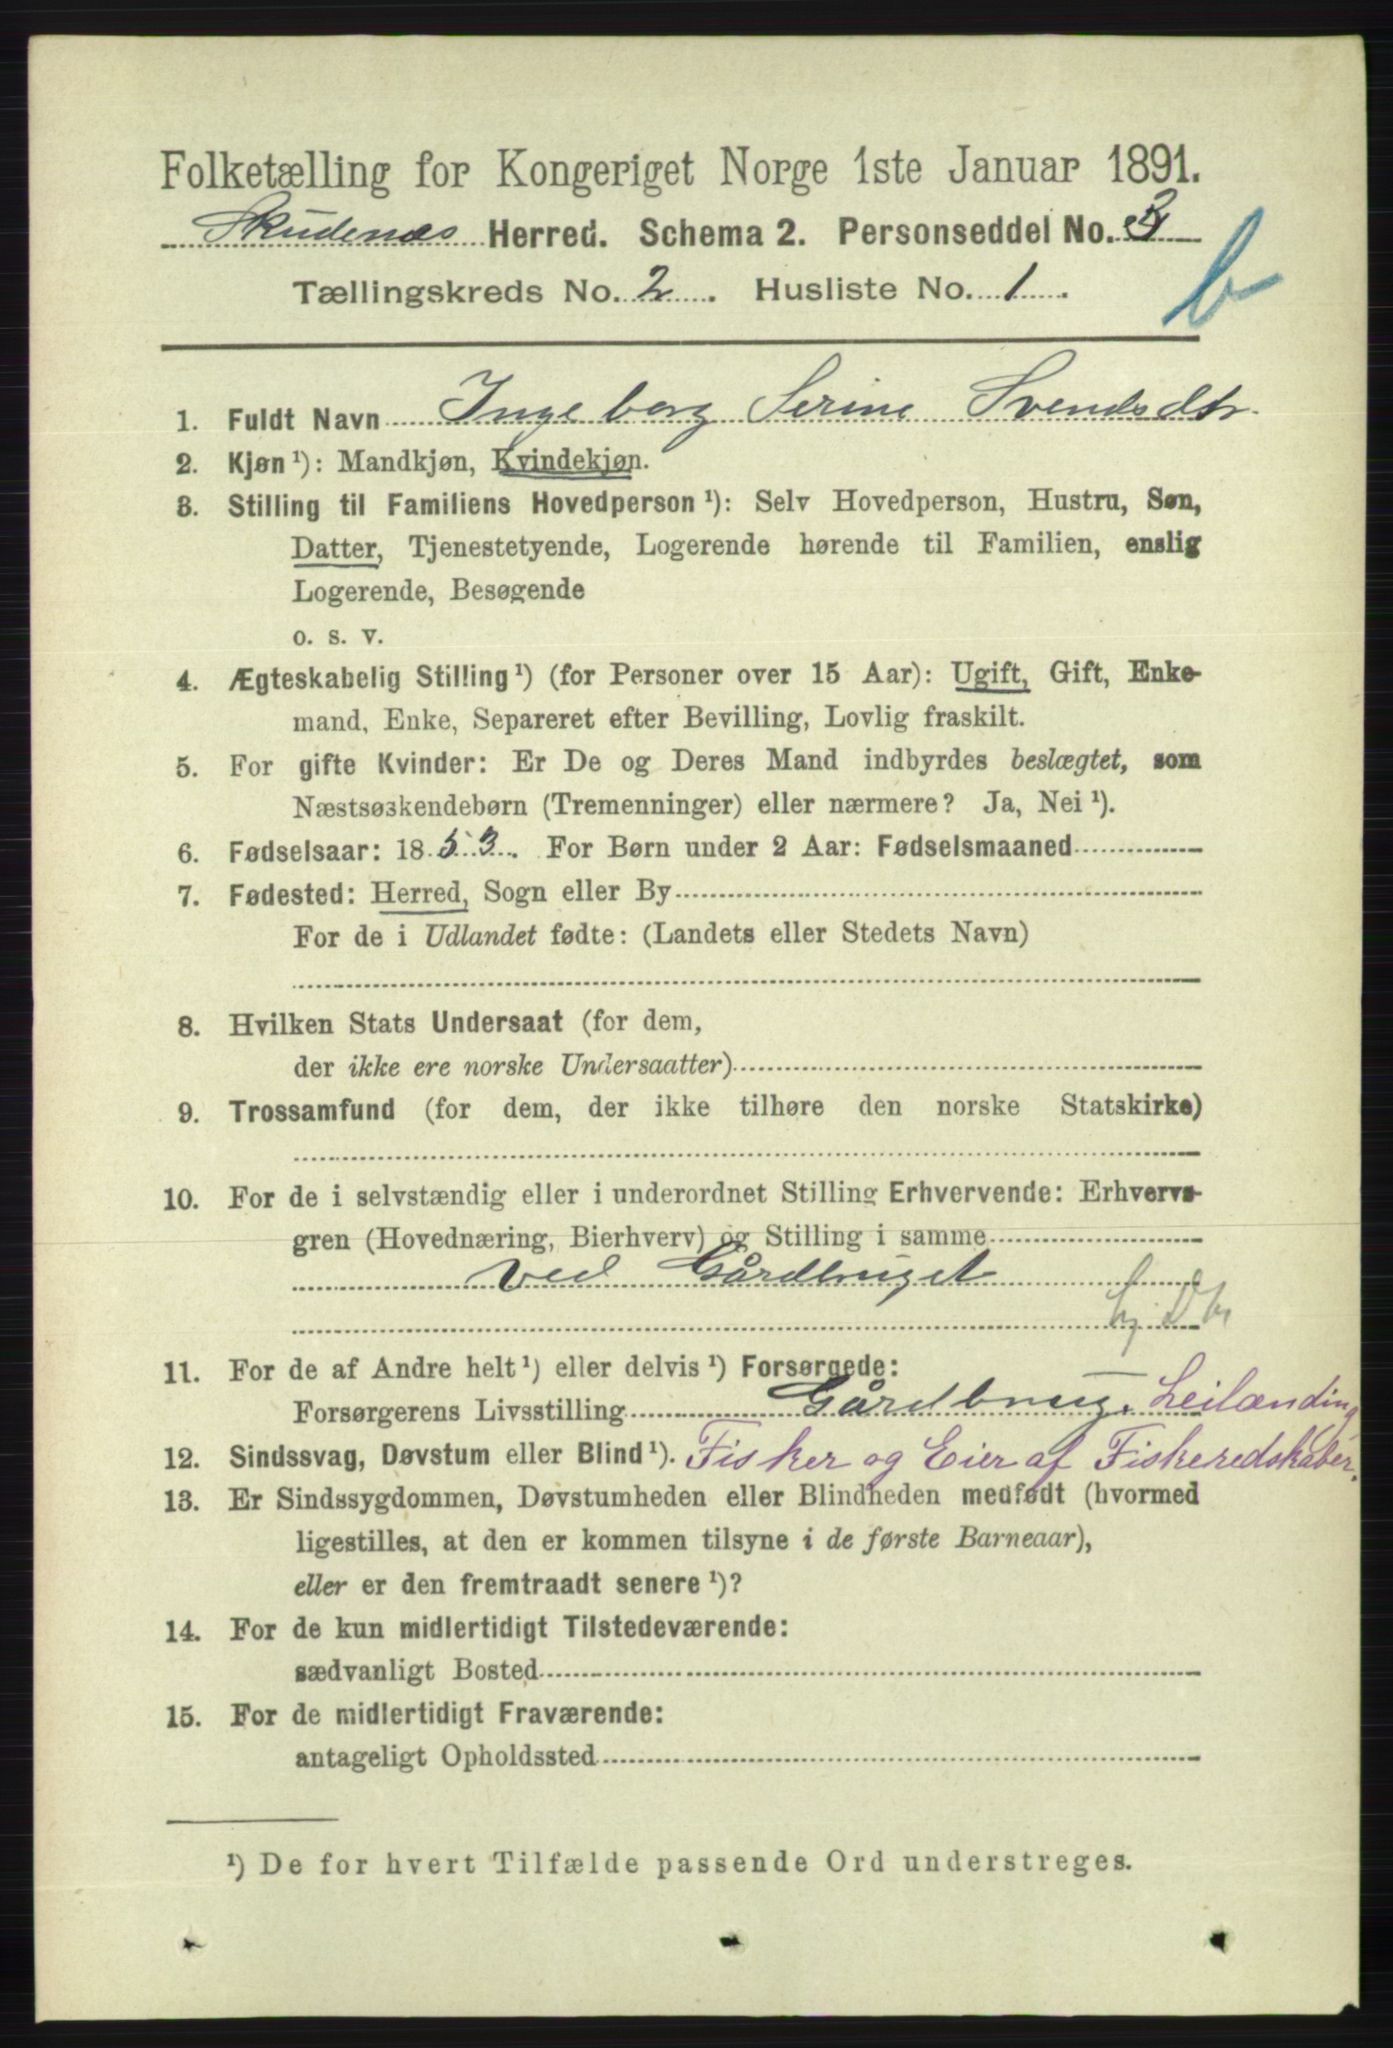 Folketælling for Kongeriget Norge 1ste Januar 1891.
Skudenæs Herred. Schema 2. Personseddel No. 3
b
Tællingskreds No. 2. Husliste No. 1.
1. Fuldt Navn Ingeborg Serine Svendsdtr.
2. Kjøn ¹): Mandkjøn, Kvindekjøn.
3. Stilling til Familiens Hovedperson ¹): Selv Hovedperson, Hustru, Søn,
Datter, Tjenestetyende, Logerende hørende til Familien, enslig
Logerende, Besøgende
o. s. v.
4. Ægteskabelig Stilling ¹) (for Personer over 15 Aar): Ugift, Gift, Enke-
mand, Enke, Separeret efter Bevilling, Lovlig fraskilt.
5. For gifte Kvinder: Er De og Deres Mand indbyrdes beslægtet, som
Næstsøskendebørn (Tremenninger) eller nærmere? Ja, Nei ¹).
6. Fødselsaar: 1853. For Børn under 2 Aar: Fødselsmaaned
7. Fødested: Herred, Sogn eller By
For de i Udlandet fødte: (Landets eller Stedets Navn)
8. Hvilken Stats Undersaat (for dem,
der ikke ere norske Undersaatter)
9. Trossamfund (for dem, der ikke tilhøre den norske Statskirke)
10. For de i selvstændig eller i underordnet Stilling Erhvervende: Erhvervs-
gren (Hovednæring, Bierhverv) og Stilling i samme
ved Gårdbruget
11. For de af Andre helt ¹) eller delvis ¹) Forsørgede:
Forsørgerens Livsstilling Gårdbrug, Leilænding
12. Sindssvag, Døvstum eller Blind ¹). Fisker og Eier af Fiskeredskaber.
13. Er Sindssygdommen, Døvstumheden eller Blindheden medfødt (hvormed
ligestilles, at den er kommen tilsyne i de første Barneaar),
eller er den fremtraadt senere ¹)?
14. For de kun midlertidigt Tilstedeværende:
sædvanligt Bosted
15. For de midlertidigt Fraværende:
antageligt Opholdssted
¹) De for hvert Tilfælde passende Ord understreges.